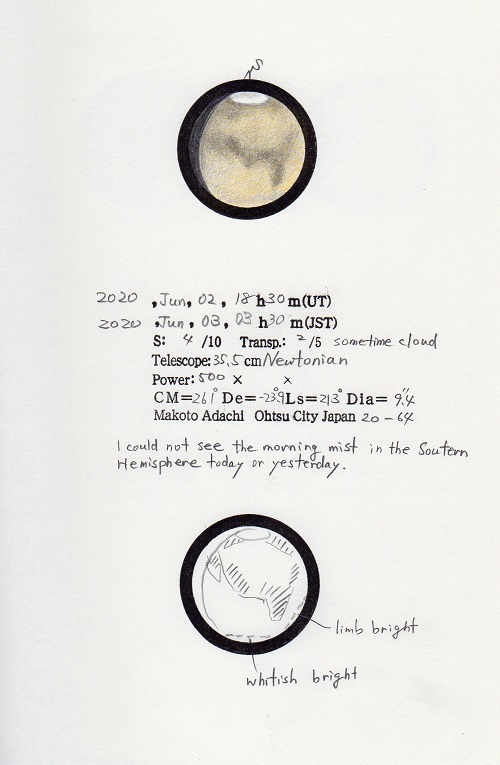 S
2020 , Jun, 02, 18 h 30 m (UT)
2020 , Jun, 03, 03 h 30 m (JST)
S: 4 /10 Transp.: 2 /5 sometime cloud
Telescope: 35.5 cm Newtonian
Power: 500 × ×
CM=261° De=-23.9 Ls=213° Dia= 9".4
Makoto Adachi Ohtsu City Japan 20-64
I could not see the morning mist in the Soutern
Hemisphere today or yesterday.
limb bright
whitish bright